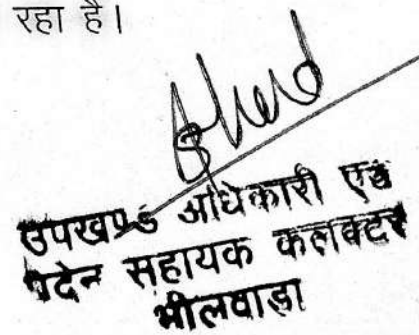 रहा है।
उपखण्ड अधिकारी एवं
पदेन सहायक कलक्टर
भीलवाड़ा